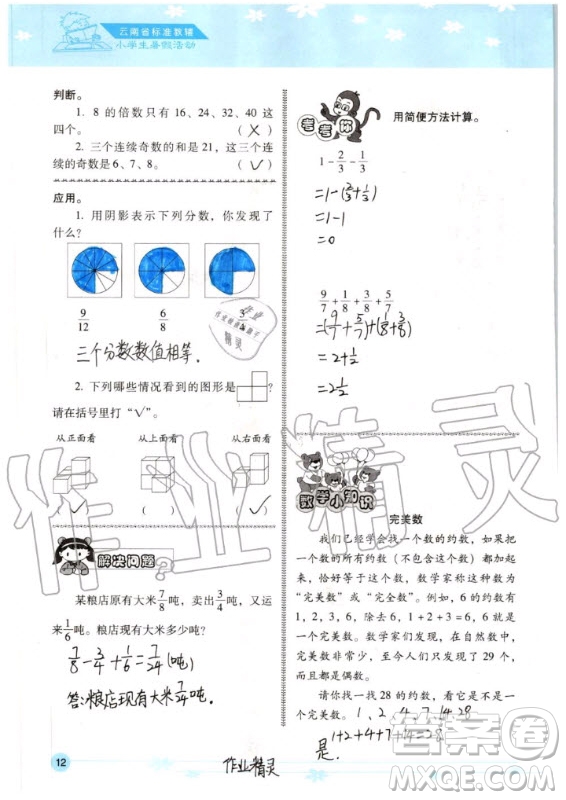 云南省标准教辅
小学生暑假活动
判断。
1. 8的倍数只有16、24、32、40这
四个。 (X)
2. 三个连续奇数的和是21，这三个连
续的奇数是6、7、8。 (✓)
应用。
1. 用阴影表示下列分数，你发现了
什么？
9/12 6/8 3/4
三个分数数值相等.
2. 下列哪些情况看到的图形是
请在括号里打“✓”。
从正面看 从上面看 从右面看
(✓) ( ) (✓)
解决问题
某粮店原有大米7/8吨，卖出3/4吨，又运
来1/6吨。粮店现有大米多少吨？
7/8-3/4+1/6=7/24(吨)
答:粮店现有大米7/24吨.
12
考考你
用简便方法计算。
1-2/3-1/3
=1-(2/3+1/3)
=1-1
=0
9/7+1/8+3/8+5/7
=(9/7+5/7)+(1/8+3/8)
=2+1/2
=2 1/2
数学小知识
完美数
我们已经学会找一个数的约数，如果把
一个数的所有约数（不包含这个数）都加起
来，恰好等于这个数，数学家称这样的数为
“完美数”或“完全数”。例如，6的约数有
1，2，3，6，除去6，1+2+3=6，6就是
一个完美数。数学家们发现，在自然数中，
完美数非常少，至今人们只发现了29个，而
且都是偶数。
请你找一找28的约数，看一看它是不是
一个完美数。1、2、4、7、14、28
1+2+4+7+14=28
是.
作业精灵
作业精灵
答案圈